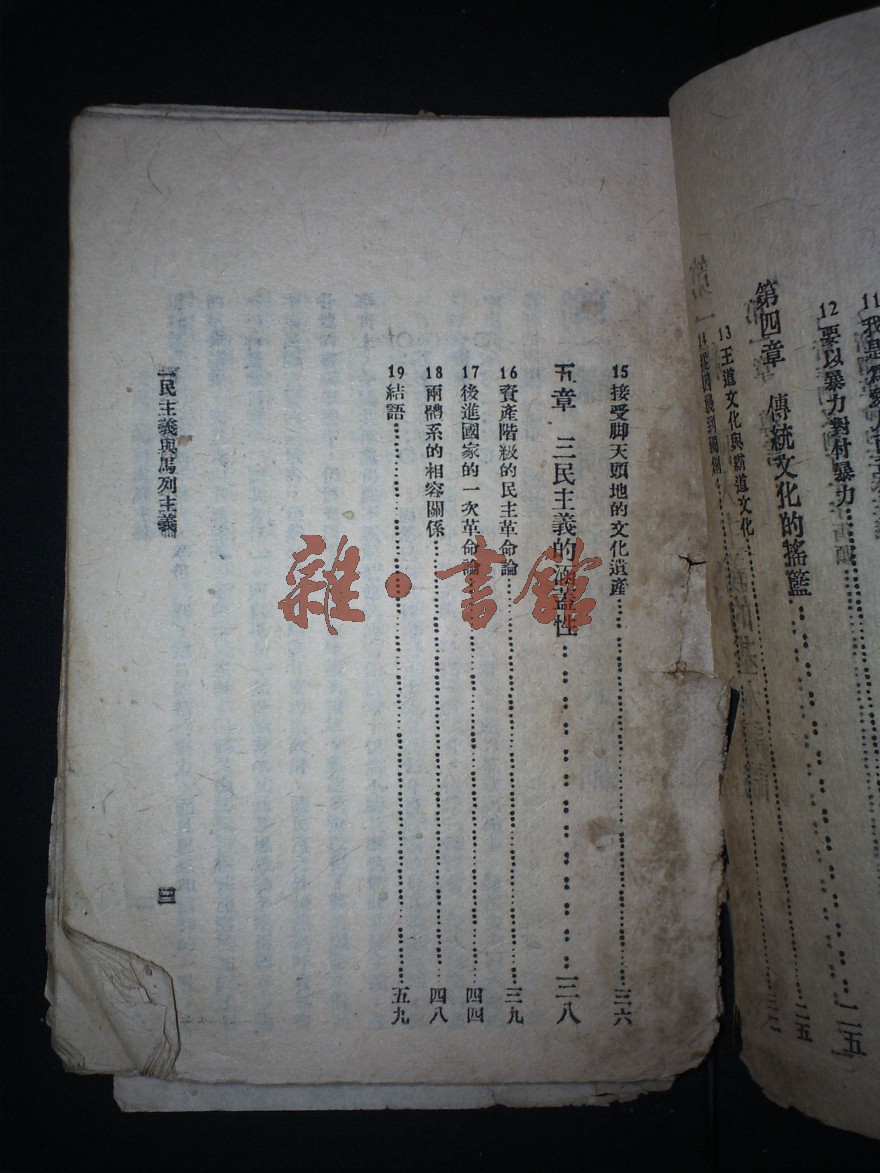 12 要以暴力對付暴力……二五
第四章　傳統文化的搖籃……二五
13 王道文化與霸道文化……
15 接受脚天頭地的文化遺產……三六
五章　三民主義的涵蓋性……三八
16 資產階級的民主革命論……三九
17 後進國家的一次革命論……四四
18 兩體系的相容關係……四八
19 結語……五九
民主義與馬列主義
三
雜·書館